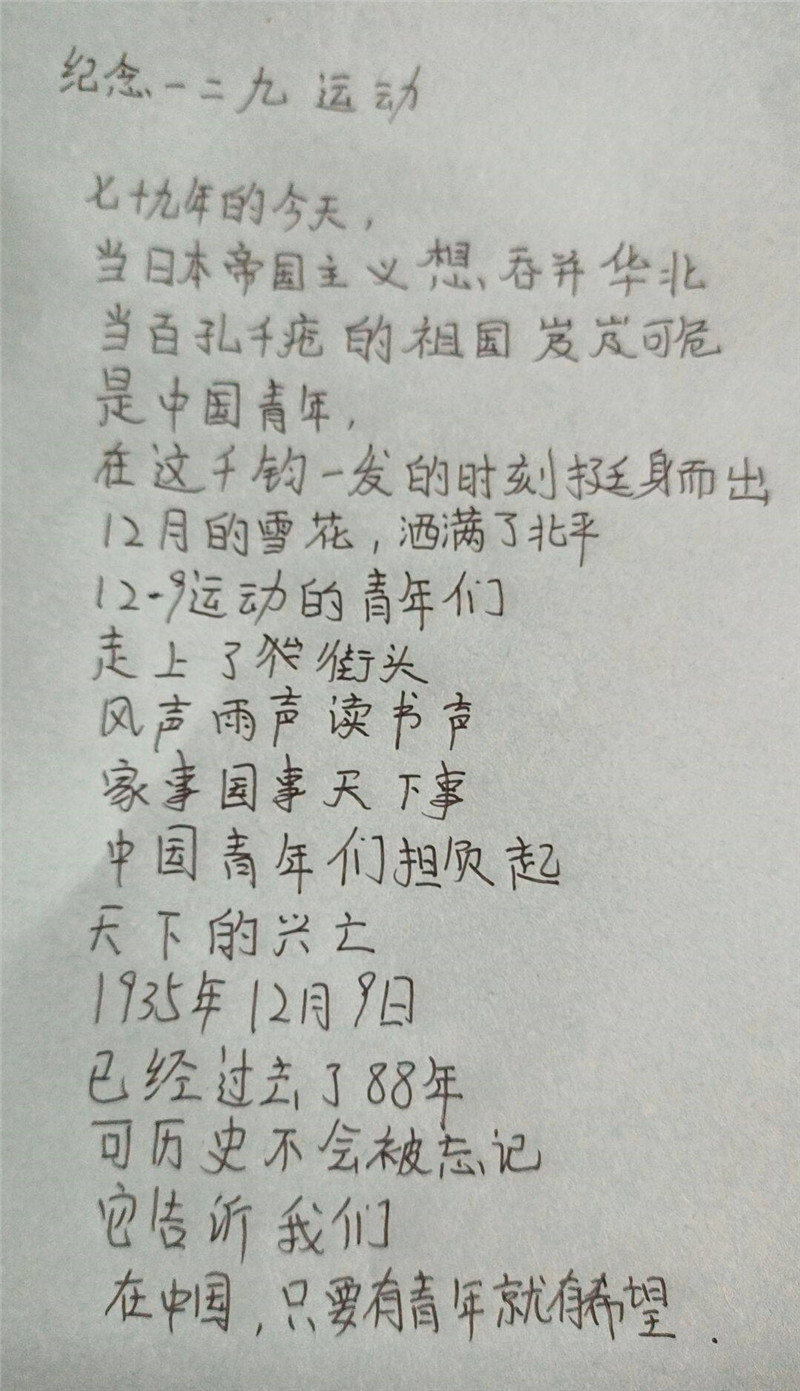 纪念一二九运动
七十九年的今天，
当日本帝国主义想吞并华北
当百孔千疮的祖国岌岌可危
是中国青年，
在这千钧一发的时刻挺身而出
12月的雪花，洒满了北平
12-9运动的青年们
走上了街头
风声雨声读书声
家事国事天下事
中国青年们担负起
天下的兴亡
1935年12月9日
已经过去了88年
可历史不会被忘记
它告诉我们
在中国，只要有青年就有希望.